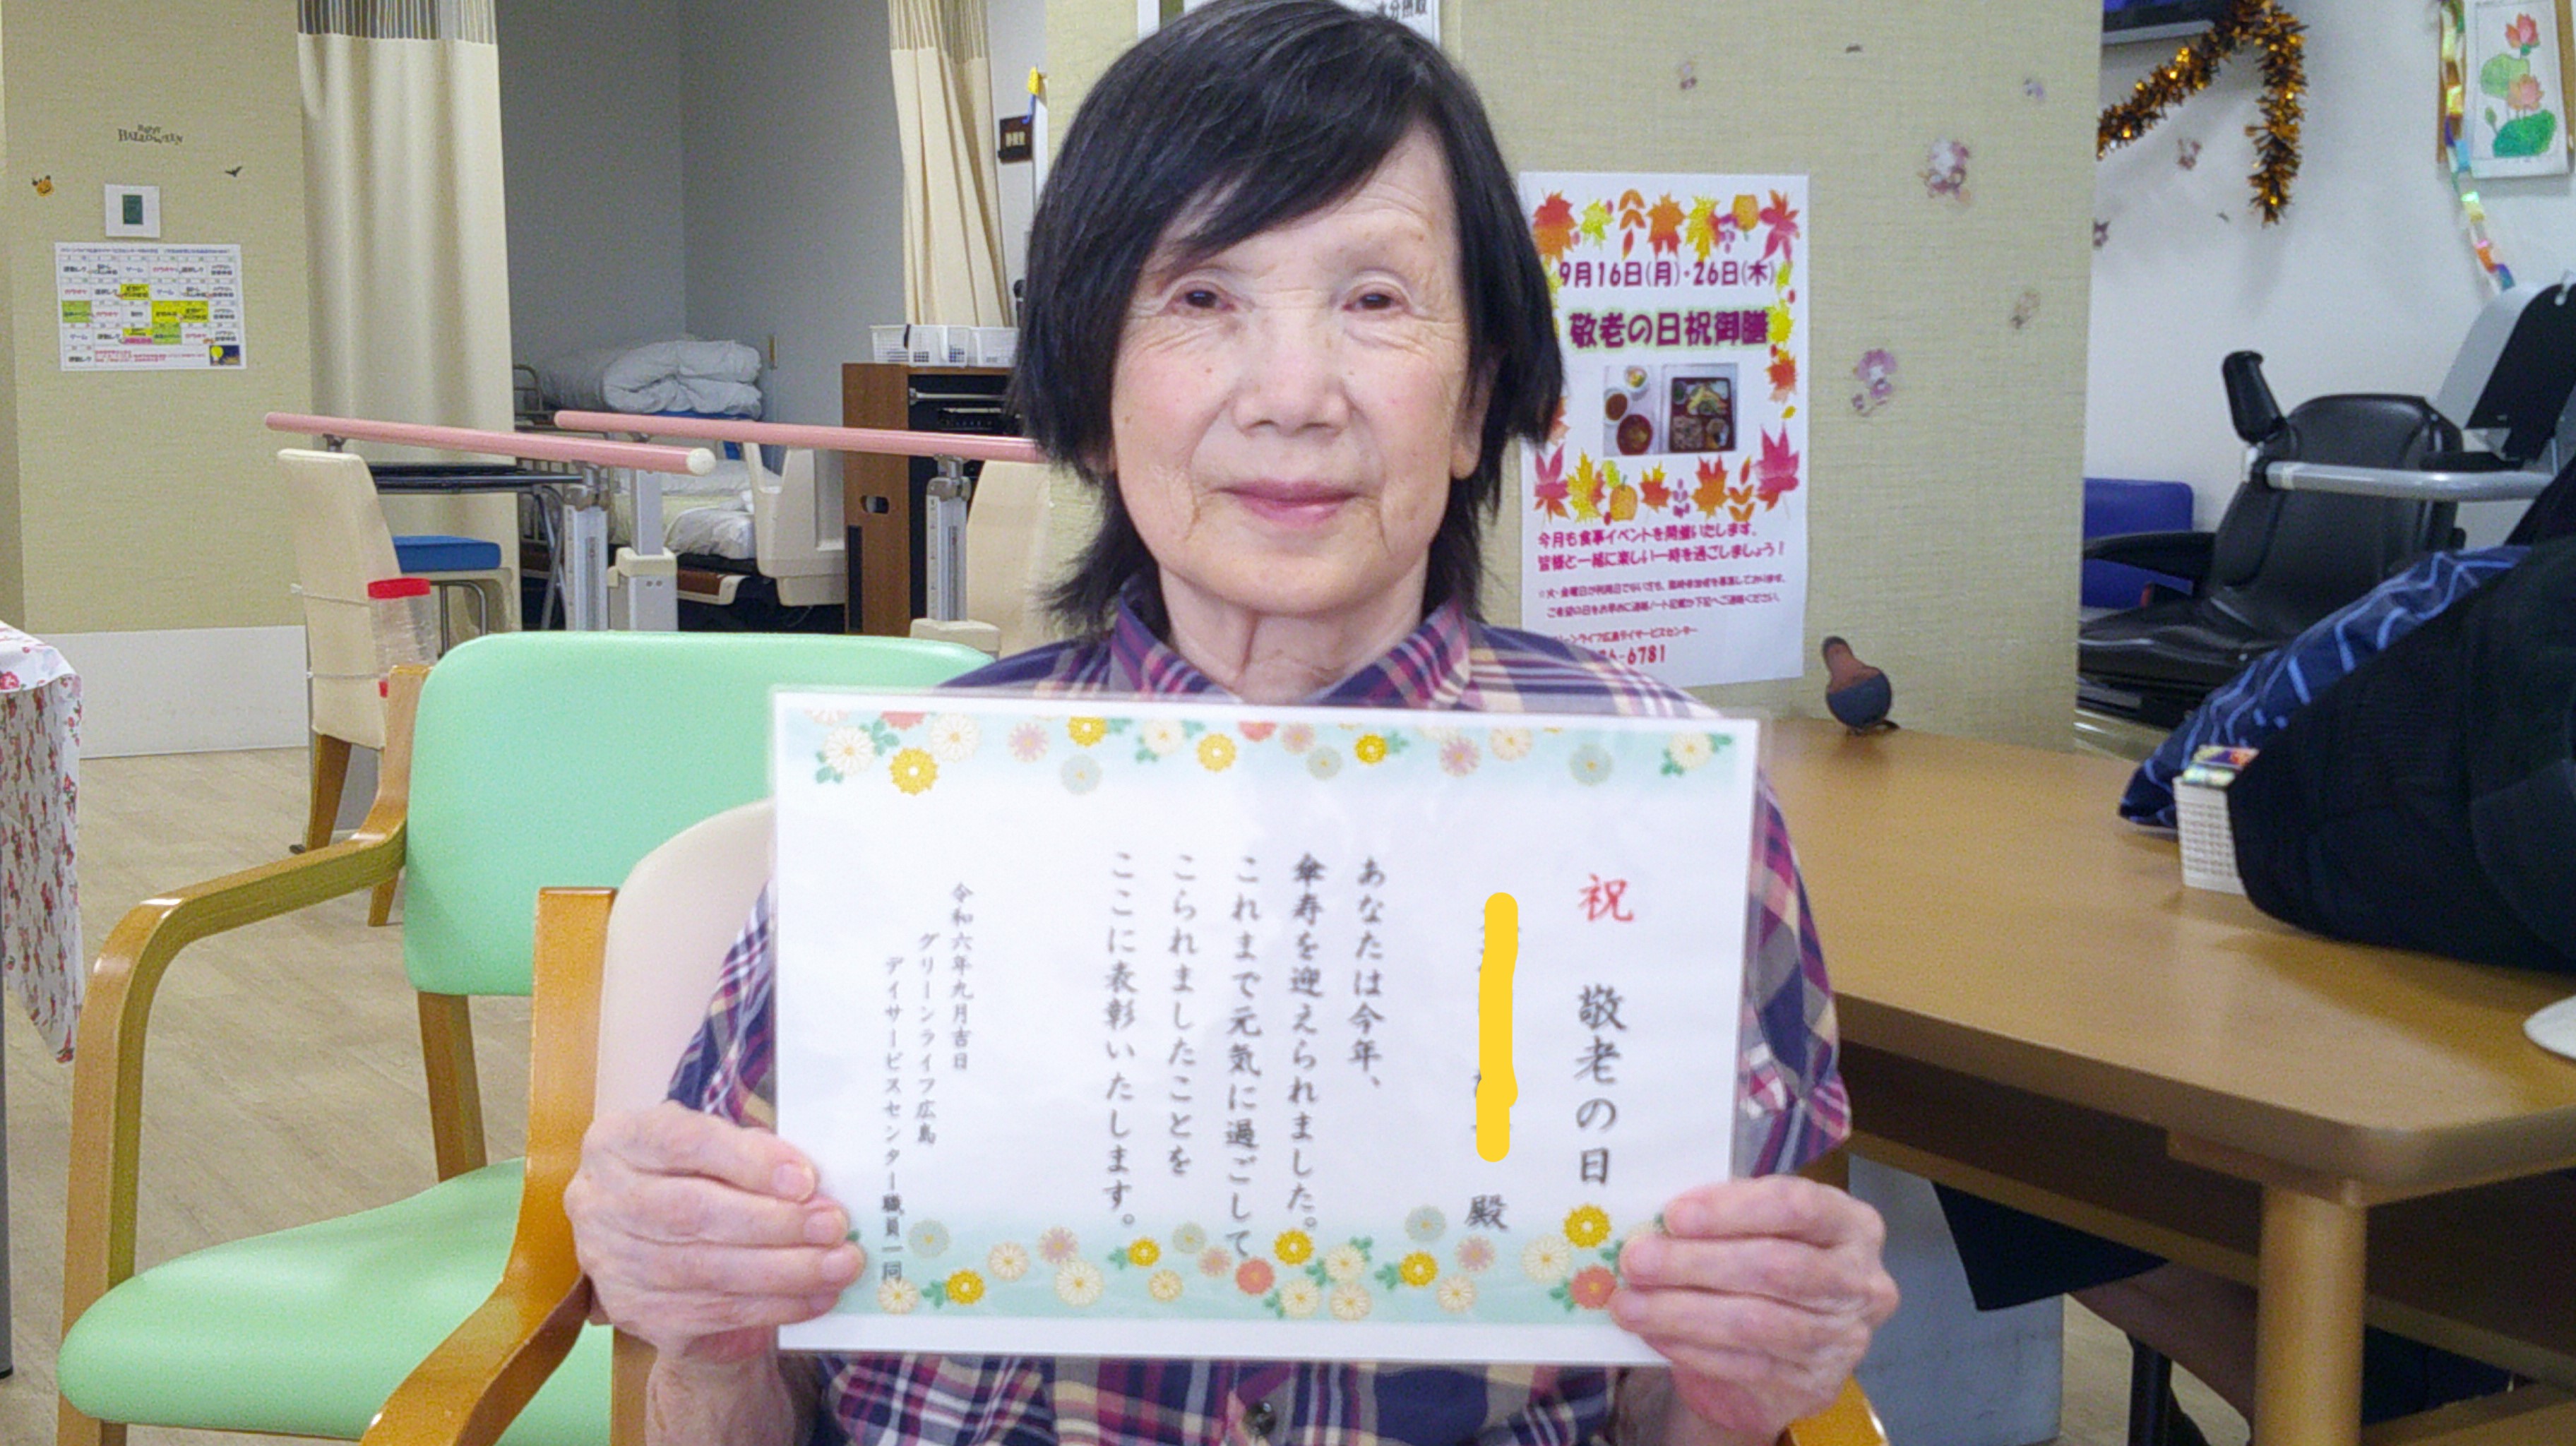 祝 敬老の日
殿
あなたは今年、
傘寿を迎えられました。
これまで元気に過ごして
こられましたことを
ここに表彰いたします。
令和六年九月吉日
グリーンライフ広島
デイサービスセンター職員一同
9月16日(月)・26日(木)
敬老の日祝御膳
今月も食事イベントを開催いたします。
皆様と一緒に楽しい一時を過ごしましょう!
ご希望の日をお早めに連絡ノート記載か下記へご連絡ください。
ーンライフ広島デイサービスセンター
6-6781
HAPPY
HALLOWEEN
水分摂取